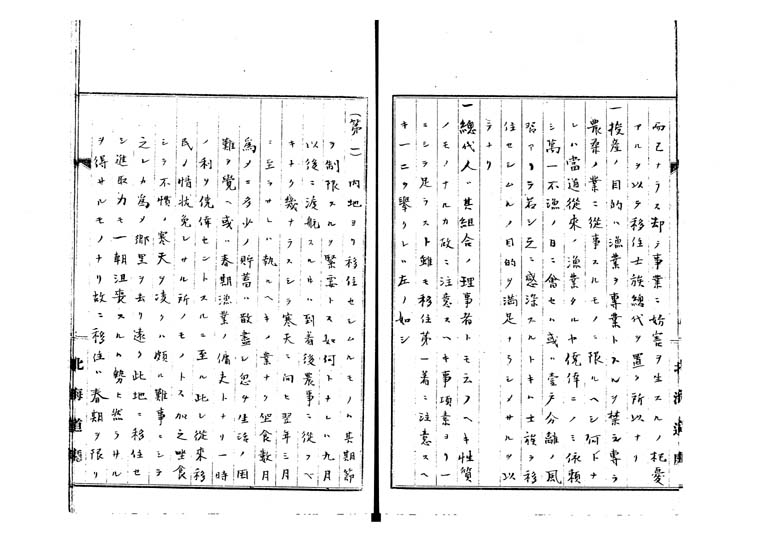 而已ナラス却テ事業ニ妨害ヲ生スルノ杞憂
アルヲ以テ移住士族総代ヲ置ク所以ナリ
一授産ノ目的ハ漁業ヲ専業トスルヲ禁シ専ラ
農桑ノ業ニ従事スルモノニ限ルヘシ何トナ
レハ當道従来ノ漁業タルヤ僥倖ニノミ依頼
シ萬一不漁ノ日ニ會セハ或ハ壹戸分離ノ風
習アリテ若シ之ニ感染スルトキハ士族ヲ移
住セシムルノ目的ヲ満足ナラシメサルヲ以
テナリ
一總代人ハ其組合ノ理事者トモ云フヘキ性質
ノモノナルカ故ニ注意スヘキ事項素ヨリ一
ニシテ足ラスト雖モ移住第一着ニ注意スヘ
キ一二ヲ舉クレハ左ノ如シ
(第一) 内地ヨリ移住セシムルモノハ其期節
ヲ制限スルヲ緊要トス如何トナレハ九月
以後ニ渡航スルモハ到着後農事ニ従フヘ
キナク幾ナラスシテ寒天ニ向ヒ翌年三月
ニ至ラサレハ執ルヘキノ業ナク坐食数月
為メニ多少ノ貯蓄ハ散盡シ忽チ生活ノ困
難ヲ覚ヘ或ハ春期漁業ノ傭夫トナリ一時
ノ利ヲ僥倖セントスルニ至ル此レ従来移
民ノ情状免レサル所ノモノトス加之坐食
シテ不慣ノ寒天ヲ凌クハ頗ル難事ニシテ
之レカ為メ郷里ヲ去リ遠ク此地ニ移住セ
シ進取力モ一朝沮喪スルハ勢ヒ然ラサル
ヲ得サルモノナリ故ニ移住ハ春期ヲ限リ
北海道廳